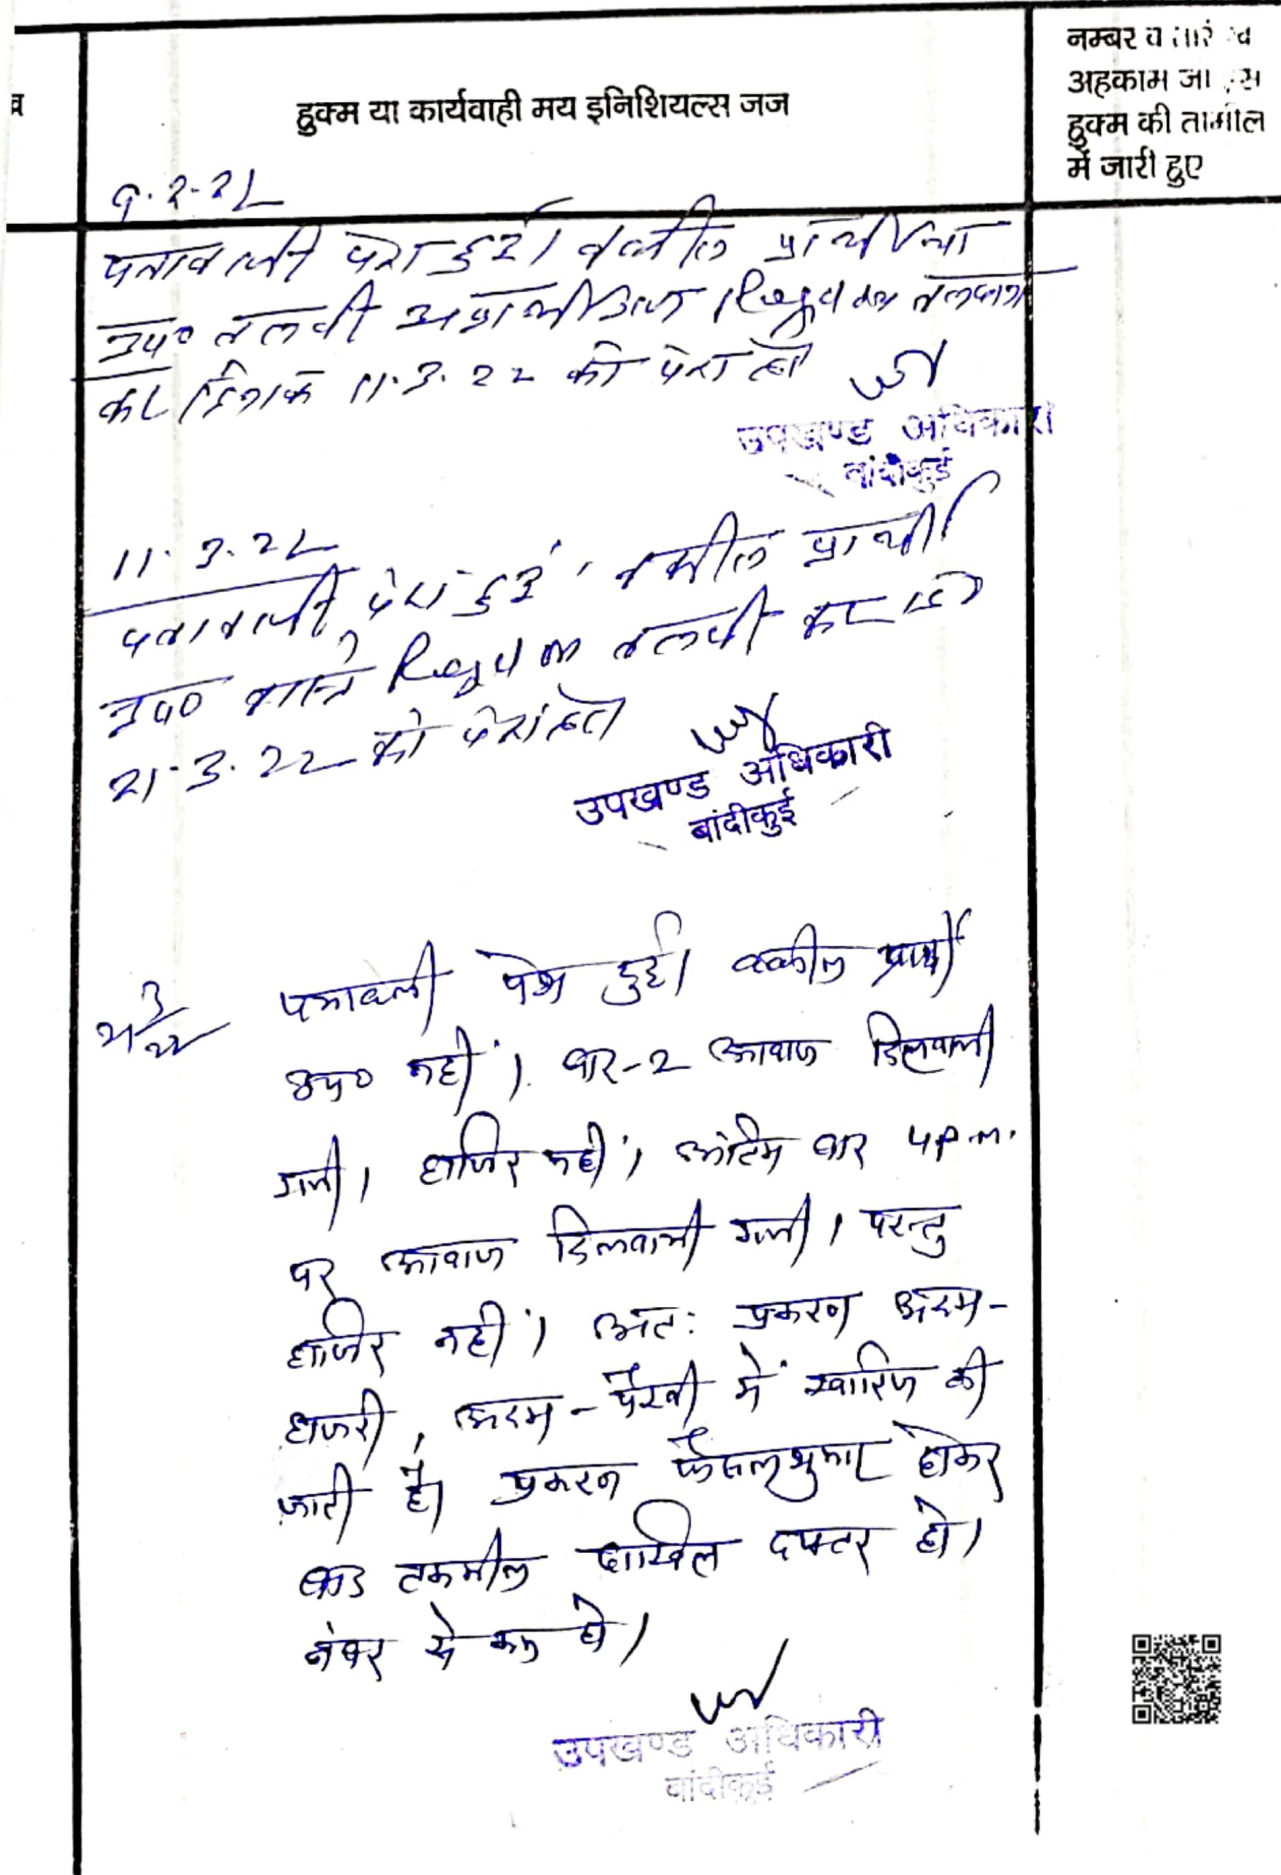 ख
हुक्म या कार्यवाही मय इनिशियल्स जज
नम्बर व तारीख
अहकाम जो इस
हुक्म की तामील
में जारी हुए
9.2.22
पत्रावली पेश हुई। वकील प्रार्थीया
उप० तलवी अप्रार्थीगण Regd तलवाना
कर दिनांक 11.3.22 को पेश हो
उपखण्ड अधिकारी
बांदीकुई
11.3.22
पत्रावली पेश हुई। वकील प्रार्थी
उप० वास्ते Regd तलवी कर दि०
21.3.22 को पेश हो
उपखण्ड अधिकारी
बांदीकुई
21/3/22
पत्रावली पेश हुई। वकील प्रार्थी
उप० नहीं। बार-2 आवाज दिलवायी
गयी। हाजिर नहीं। अंतिम बार 4 p.m.
पर आवाज दिलवायी गयी। परन्तु
हाजिर नहीं। अतः प्रकरण अदम-
हाजरी, अदम-पैरवी में खारिज की
जाती है। प्रकरण फैसलशुमार होकर
बाद तकमील दाखिल दफ्तर हो।
नंबर से कम हो।
उपखण्ड अधिकारी
बांदीकुई